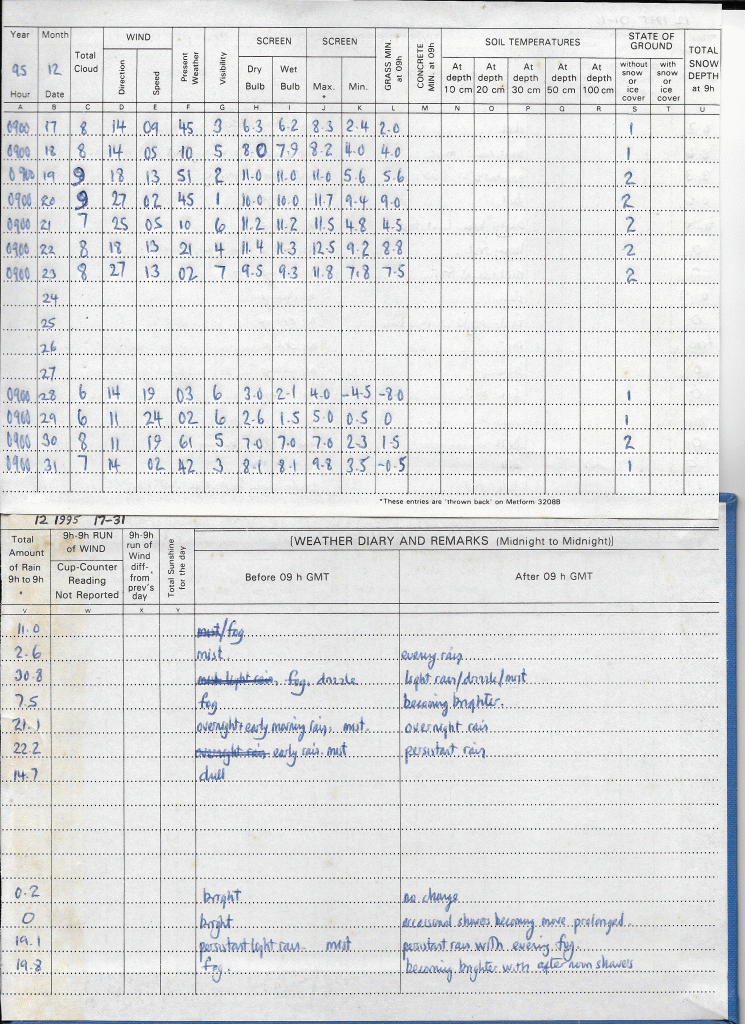 Year Month Total Cloud WIND Present Weather Visibility SCREEN SCREEN GRASS MIN. at 09h CONCRETE MIN. at 09h SOIL TEMPERATURES STATE OF GROUND TOTAL SNOW DEPTH at 9h
95 12 Direction Speed Dry Bulb Wet Bulb Max. * Min. At depth 10 cm At depth 20 cm At depth 30 cm At depth 50 cm At depth 100 cm without snow or ice cover with snow or ice cover
Hour Date
A B C D E F G H I J K L M N O P Q R S T U
0900 17 8 14 09 45 3 6.3 6.2 8.3 2.4 2.0 1
0900 18 8 14 05 10 5 8.0 7.9 8.2 4.0 4.0 1
0900 19 9 18 13 51 2 11.0 11.0 11.0 5.6 5.6 2
0900 20 9 27 02 45 1 10.0 10.0 11.7 9.4 9.0 2
0900 21 7 25 05 10 6 11.2 11.2 11.5 4.8 4.5 2
0900 22 8 18 13 21 4 11.4 11.3 12.5 9.2 8.8 2
0900 23 8 27 13 02 7 9.5 9.3 11.8 7.8 7.5 2
24
25
26
27
0900 28 6 14 19 03 6 3.0 2.1 4.0 -4.5 -8.0 1
0900 29 6 11 24 02 6 2.6 1.5 5.0 0.5 0 1
0900 30 8 11 19 61 5 7.0 7.0 7.0 2.3 1.5 2
0900 31 7 14 02 42 3 8.1 8.1 9.8 3.5 -0.5 1
*These entries are 'thrown back' on Metform 3208B
12 1995 17-31
Total Amount of Rain 9h to 9h * 9h-9h RUN of WIND 9h-9h run of Wind diff- from prev's day Total Sunshine for the day (WEATHER DIARY AND REMARKS (Midnight to Midnight))
Cup-Counter Reading Not Reported Before 09 h GMT After 09 h GMT
V W X Y
11.0 mist/fog
2.6 mist evening rain
30.8 light rain, fog, drizzle light rain/drizzle/mist
7.5 fog becoming brighter.
21.1 overnight + early morning rain. mist. overnight rain
22.2 overnight rain early rain. mist persistant rain
14.7 dull
0.2 bright no change
0 bright occasional showers becoming more prolonged.
19.1 persistant light rain. mist persistant rain with evening fog.
19.8 fog. becoming brighter with afternoon showers